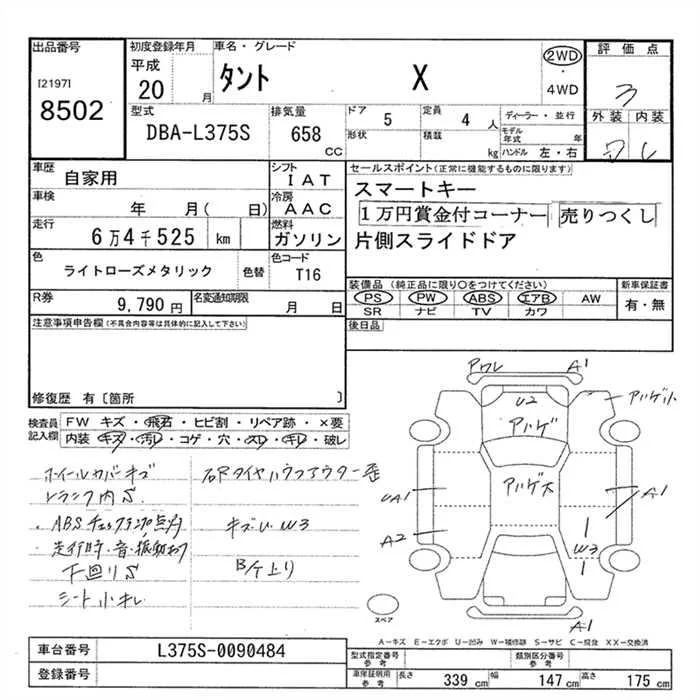 出品番号
[2197]
8502
初度登録年月
平成
20 月
車名・グレード
タント X
2WD
・
4WD
評価点
3
外装 内装
型式
DBA-L375S
排気量
658 CC
ドア 5
定員 4 人
形状
積載 kg
ディーラー・並行
モデル年式 年
ハンドル 左・右
車歴
自家用
シフト
IAT
車検
年 月( 日)
冷房
AAC
走行
6万4千525 km
燃料
ガソリン
色
ライトローズメタリック
色替
色コード
T16
R券
9,790円
名変通知期限
月 日
セールスポイント(正常に機能するものに限ります)
スマートキー
1万円賞金付コーナー 売りつくし
片側スライドドア
装備品 (純正品に限り○をつけてください)
PS PW ABS エアB AW
SR ナビ TV カワ
新車保証書
有・無
後日品
注意事項申告欄(不具合内容等は具体的に記入して下さい)
修復歴 有〔箇所 〕
検査員記入欄
FW キズ・飛石・ヒビ割・リペア跡・×要
内装・キズ・汚レ・コゲ・穴・スレ・キレ・破レ
ホイールカバーキズ
トランク内S.
・ABSチェックランプ点灯
・走行時・音・振動有
下廻りS
シート小キレ
右Rタイヤハウスアウター歪
キズU W3
アワレ A1
U2
アハゲ
アハゲ小
アハゲ大
UA1
A2
A1
W3
A1
スペア
A−キズ E−エクボ U−凹み W−補修跡 S−サビ C−腐食 XX−交換済
車台番号
L375S-0090484
登録番号
型式指定番号
参考
類別区分番号
参考
車保証明用
参考
長さ 339 cm
幅 147 cm
高さ 175 cm